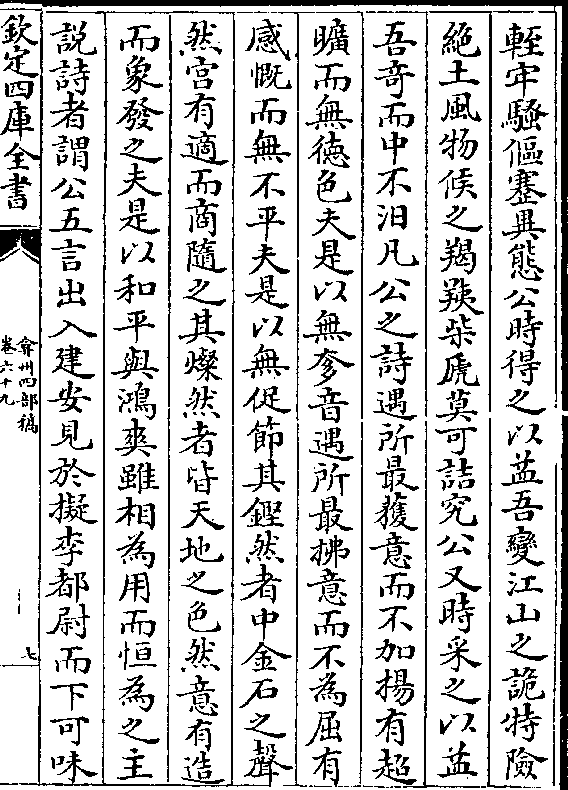 輊牢騷傴蹇異態公時得之以益吾變江山之詭特險
絶土風物候之羯羠柴虒莫可詰究公又時采之以益
吾竒而中不汨凡公之詩遇所最獲意而不加揚有超
曠而無徳色夫是以無奓音遇所最拂意而不為屈有
感慨而無不平夫是以無促節其鏗然者中金石之聲
然宫有適而商隨之其燦然者皆天地之色然意有造
而象發之夫是以和平與鴻爽雖相為用而恒為之主
説詩者謂公五言出入建安見於擬李都尉而下可味
欽定四庫全書
弇州四部稿
卷六十九
七